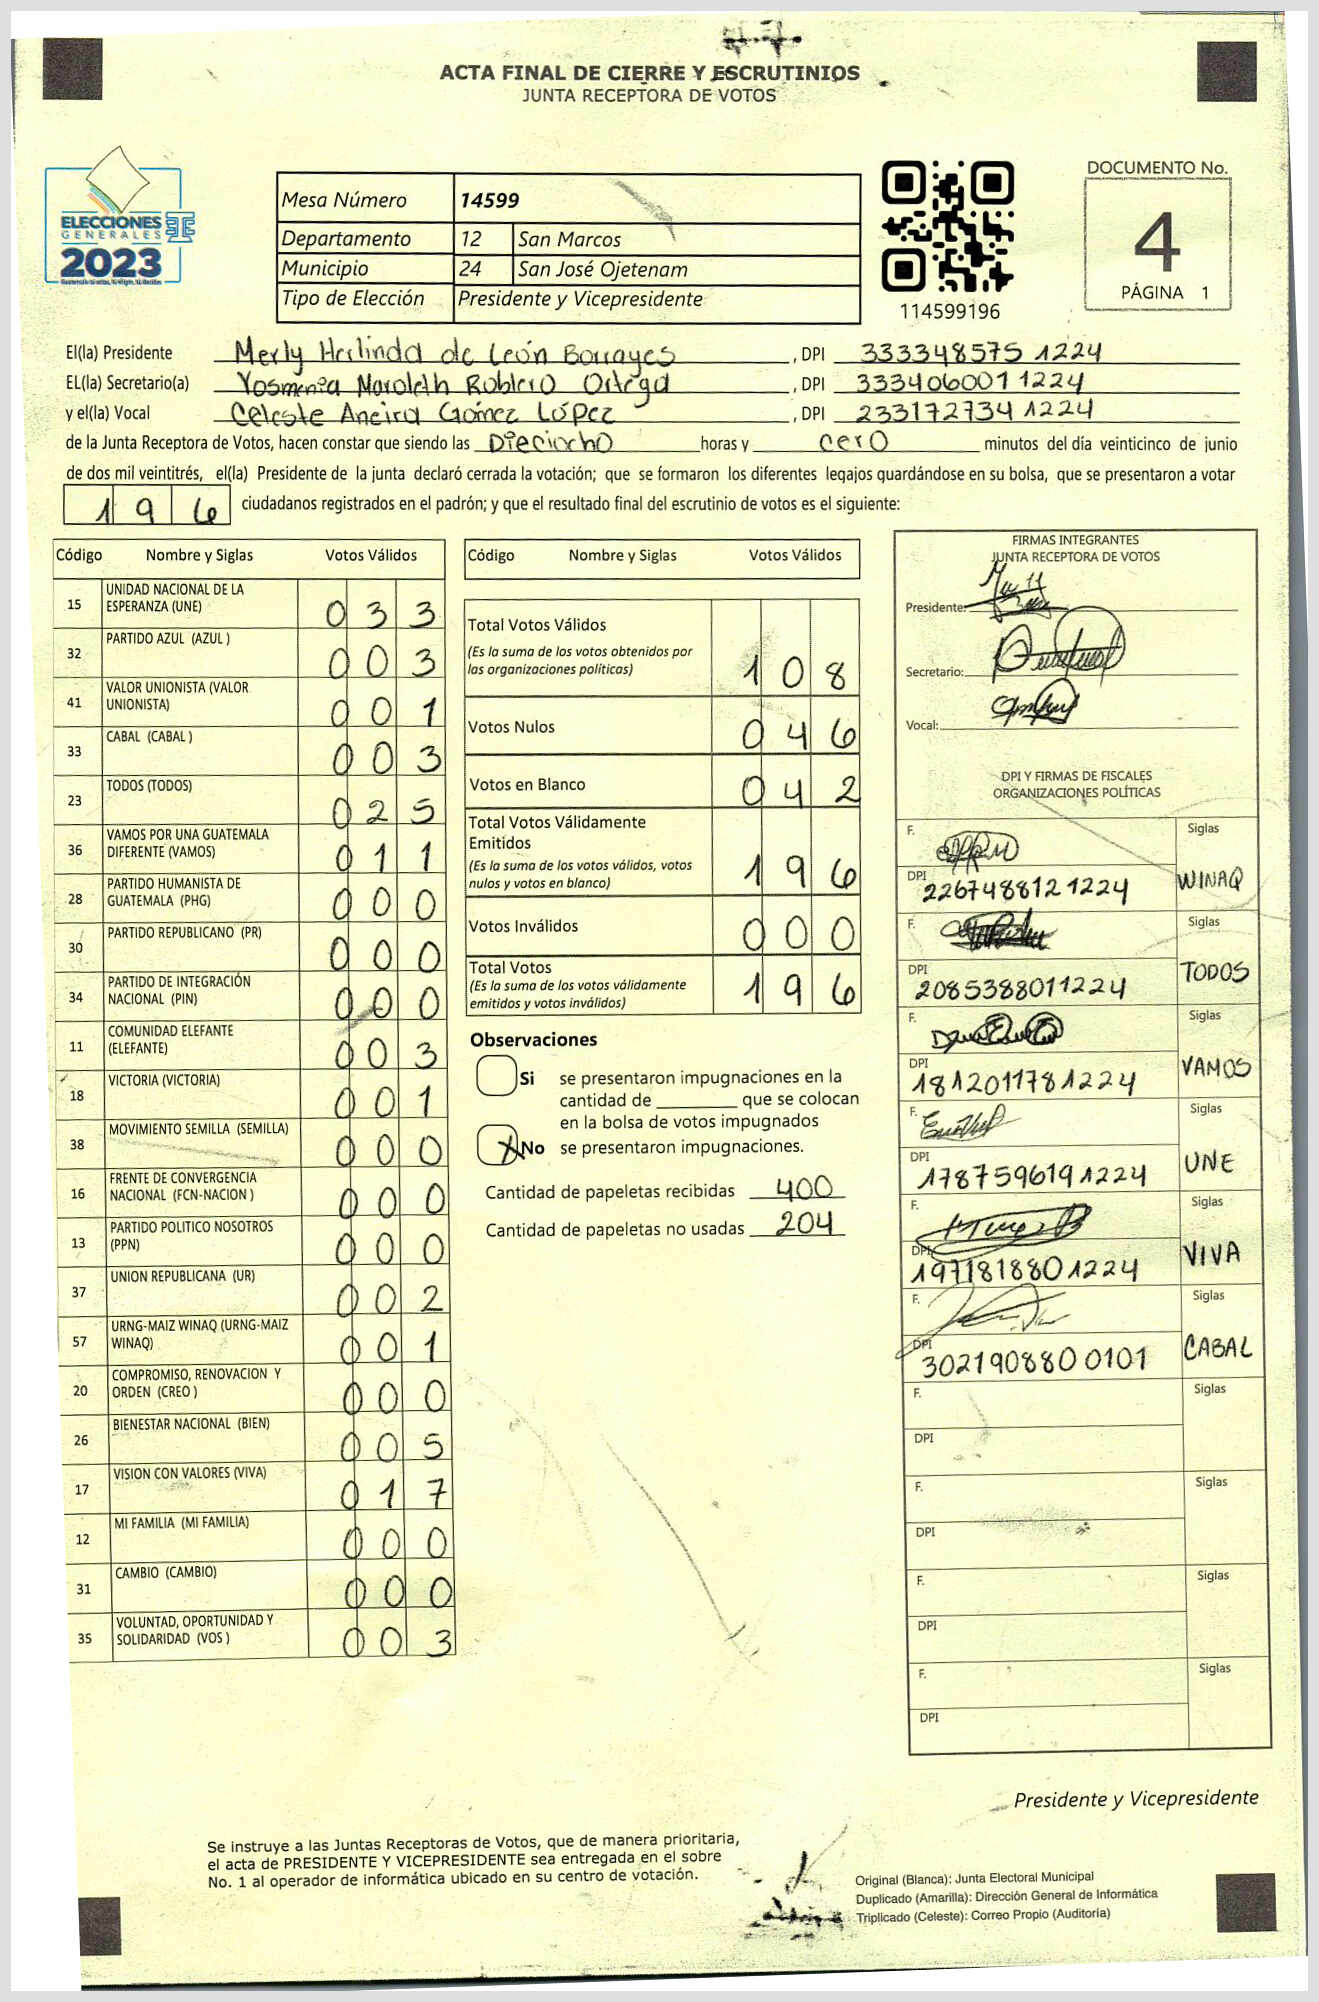 ACTA FINAL DE CIERRE Y ESCRUTINIOS
JUNTA RECEPTORA DE VOTOS
ELECCIONES
GENERALES
2023
Mesa Número 14599
Departamento 12 San Marcos
Municipio 24 San José Ojetenam
Tipo de Elección Presidente y Vicepresidente
114599196
DOCUMENTO No.
4
PÁGINA 1
El(la) Presidente Merly Herlinda de León Borrayes, DPI 333348575 1224
EL(la) Secretario(a) Ortega, DPI 333406001 1224
y el(la) Vocal Celeste Gómez López, DPI 233172734 1224
de la Junta Receptora de Votos, hacen constar que siendo las Dieciocho horas y cero minutos del día veinticinco de junio
de dos mil veintitrés, el(la) Presidente de la junta declaró cerrada la votación; que se formaron los diferentes legajos guardándose en su bolsa, que se presentaron a votar
196 ciudadanos registrados en el padrón; y que el resultado final del escrutinio de votos es el siguiente:
Código Nombre y Siglas Votos Válidos
15 UNIDAD NACIONAL DE LA ESPERANZA (UNE) 033
32 PARTIDO AZUL (AZUL ) 003
41 VALOR UNIONISTA (VALOR UNIONISTA) 001
33 CABAL (CABAL ) 003
23 TODOS (TODOS) 025
36 VAMOS POR UNA GUATEMALA DIFERENTE (VAMOS) 011
28 PARTIDO HUMANISTA DE GUATEMALA (PHG) 000
30 PARTIDO REPUBLICANO (PR) 000
34 PARTIDO DE INTEGRACIÓN NACIONAL (PIN) 000
11 COMUNIDAD ELEFANTE (ELEFANTE) 003
18 VICTORIA (VICTORIA) 001
38 MOVIMIENTO SEMILLA (SEMILLA) 000
16 FRENTE DE CONVERGENCIA NACIONAL (FCN-NACION ) 000
13 PARTIDO POLITICO NOSOTROS (PPN) 000
37 UNION REPUBLICANA (UR) 002
57 URNG-MAIZ WINAQ (URNG-MAIZ WINAQ) 001
20 COMPROMISO, RENOVACION Y ORDEN (CREO ) 000
26 BIENESTAR NACIONAL (BIEN) 005
17 VISION CON VALORES (VIVA) 017
12 MI FAMILIA (MI FAMILIA) 000
31 CAMBIO (CAMBIO) 000
35 VOLUNTAD, OPORTUNIDAD Y SOLIDARIDAD (VOS ) 003
Código Nombre y Siglas Votos Válidos
Total Votos Válidos
(Es la suma de los votos obtenidos por
las organizaciones políticas) 108
Votos Nulos 046
Votos en Blanco 042
Total Votos Válidamente
Emitidos
(Es la suma de los votos válidos, votos
nulos y votos en blanco) 196
Votos Inválidos 000
Total Votos
(Es la suma de los votos válidamente
emitidos y votos inválidos) 196
Observaciones
Si se presentaron impugnaciones en la
cantidad de ________ que se colocan
en la bolsa de votos impugnados
X No se presentaron impugnaciones.
Cantidad de papeletas recibidas 400
Cantidad de papeletas no usadas 204
FIRMAS INTEGRANTES
JUNTA RECEPTORA DE VOTOS
Presidente:
Secretario:
Vocal:
DPI Y FIRMAS DE FISCALES
ORGANIZACIONES POLÍTICAS
F. Siglas
DPI 226748812 1224 WINAQ
F. Siglas
DPI 2085388011224 TODOS
F. Siglas
DPI 1812011781224 VAMOS
F. Siglas
DPI 178759619 1224 UNE
F. Siglas
DPI 1971818801224 VIVA
F. Siglas
DPI 302190880 0101 CABAL
F. Siglas
DPI
F. Siglas
DPI
F. Siglas
DPI
F. Siglas
DPI
Presidente y Vicepresidente
Se instruye a las Juntas Receptoras de Votos, que de manera prioritaria,
el acta de PRESIDENTE Y VICEPRESIDENTE sea entregada en el sobre
No. 1 al operador de informática ubicado en su centro de votación.
Original (Blanca): Junta Electoral Municipal
Duplicado (Amarilla): Dirección General de Informática
Triplicado (Celeste): Correo Propio (Auditoría)